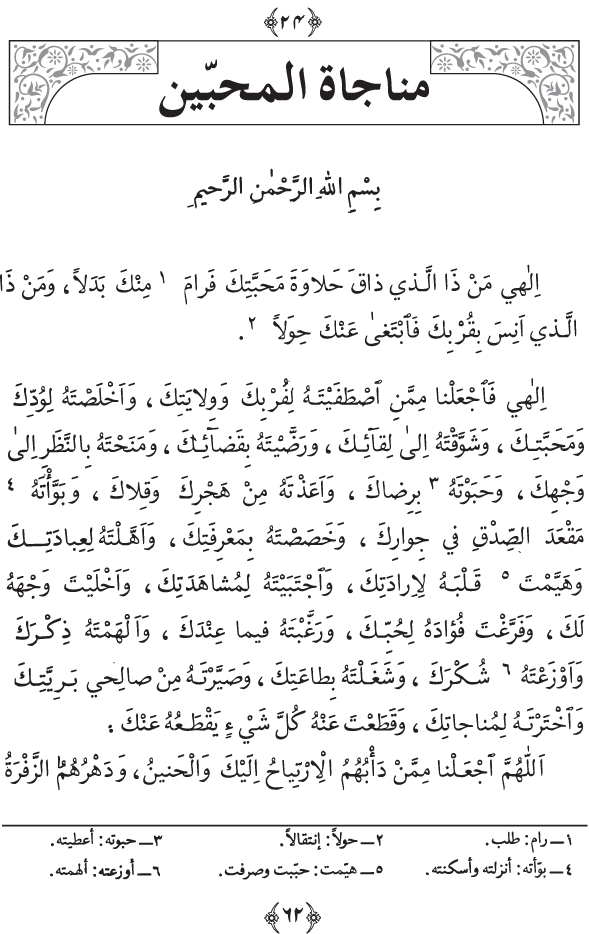 ﴿٢٤﴾
مناجاة المحبّين
بِسْمِ اللهِ الرَّحْمٰنِ الرَّحيمِ
اِلٰهي مَنْ ذَا الَّذي ذاقَ حَلاوَةَ مَحَبَّتِكَ فَرامَ ١ مِنْكَ بَدَلاً، وَمَنْ ذَا
الَّذي اَنِسَ بِقُرْبِكَ فَٱبْتَغىٰ عَنْكَ حِوَلاً ٢.
اِلٰهي فَٱجْعَلْنا مِمَّنِ ٱصْطَفَيْتَهُ لِقُرْبِكَ وَوِلايَتِكَ، وَاَخْلَصْتَهُ لِوُدِّكَ
وَمَحَبَّتِكَ، وَشَوَّقْتَهُ اِلىٰ لِقآئِكَ، وَرَضَّيْتَهُ بِقَضآئِكَ، وَمَنَحْتَهُ بِالنَّظَرِ اِلىٰ
وَجْهِكَ، وَحَبَوْتَهُ ٣ بِرِضاكَ، وَاَعَذْتَهُ مِنْ هَجْرِكَ وَقِلاكَ، وَبَوَّأْتَهُ ٤
مَقْعَدَ الصِّدْقِ في جِوارِكَ، وَخَصَصْتَهُ بِمَعْرِفَتِكَ، وَاَهَّلْتَهُ لِعِبادَتِكَ
وَهَيَّمْتَ ٥ قَلْبَهُ لِاِرادَتِكَ، وَٱجْتَبَيْتَهُ لِمُشاهَدَتِكَ، وَاَخْلَيْتَ وَجْهَهُ
لَكَ، وَفَرَّغْتَ فُؤادَهُ لِحُبِّكَ، وَرَغَّبْتَهُ فيما عِنْدَكَ، وَاَلْهَمْتَهُ ذِكْرَكَ
وَاَوْزَعْتَهُ ٦ شُكْرَكَ، وَشَغَلْتَهُ بِطاعَتِكَ، وَصَيَّرْتَهُ مِنْ صالِحي بَرِيَّتِكَ
وَٱخْتَرْتَهُ لِمُناجاتِكَ، وَقَطَعْتَ عَنْهُ كُلَّ شَيْءٍ يَقْطَعُهُ عَنْكَ:
اَللّٰهُمَّ ٱجْعَلْنا مِمَّنْ دَأْبُهُمُ الْاِرْتِياحُ اِلَيْكَ وَالْحَنينُ، وَدَهْرُهُمُ الزَّفْرَةُ
١ــ رام: طلب. ٢ــ حولاً: إنتقالاً. ٣ــ حبوته: أعطيته.
٤ــ بوّأته: أنزلته وأسكنته. ٥ــ هيّمت: حبّبت وصرفت. ٦ــ أوزعته: ألهمته.
﴿٦٢﴾